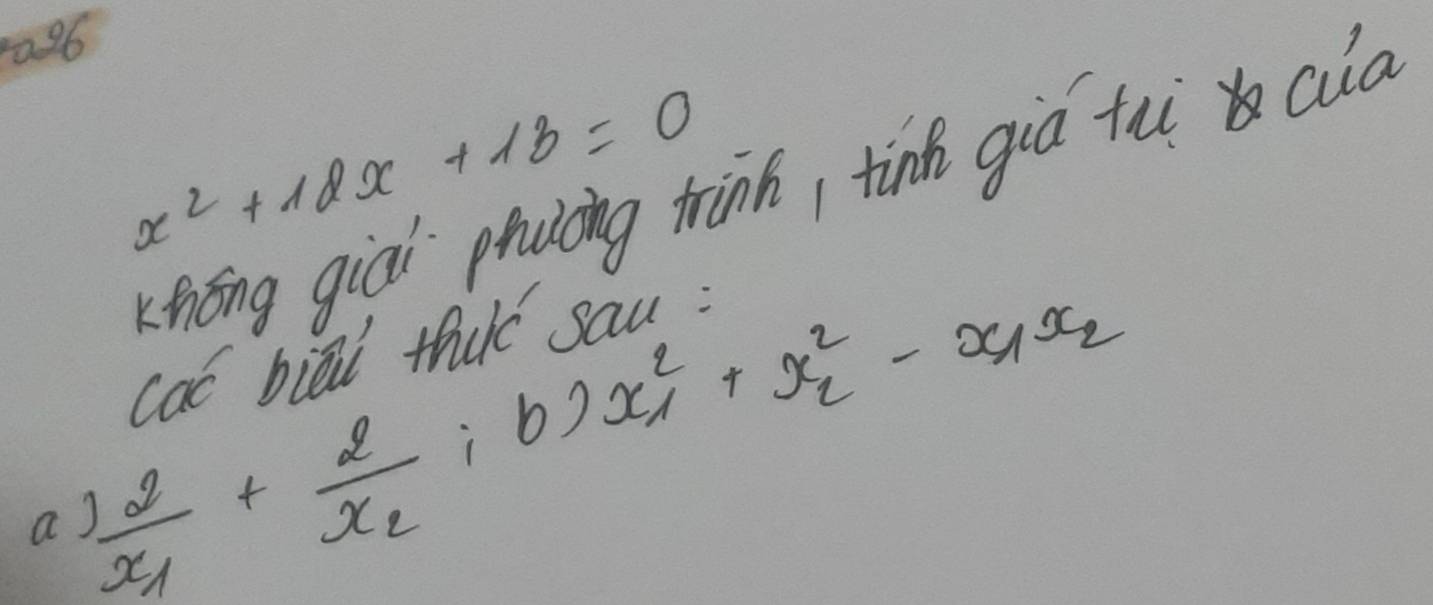 x² + 18x + 13 = 0
Không giải phương trình, tính giá trị của
các biểu thức sau :
a) 2/x₁ + 2/x₂ ; b) x₁² + x₂² - x₁x₂